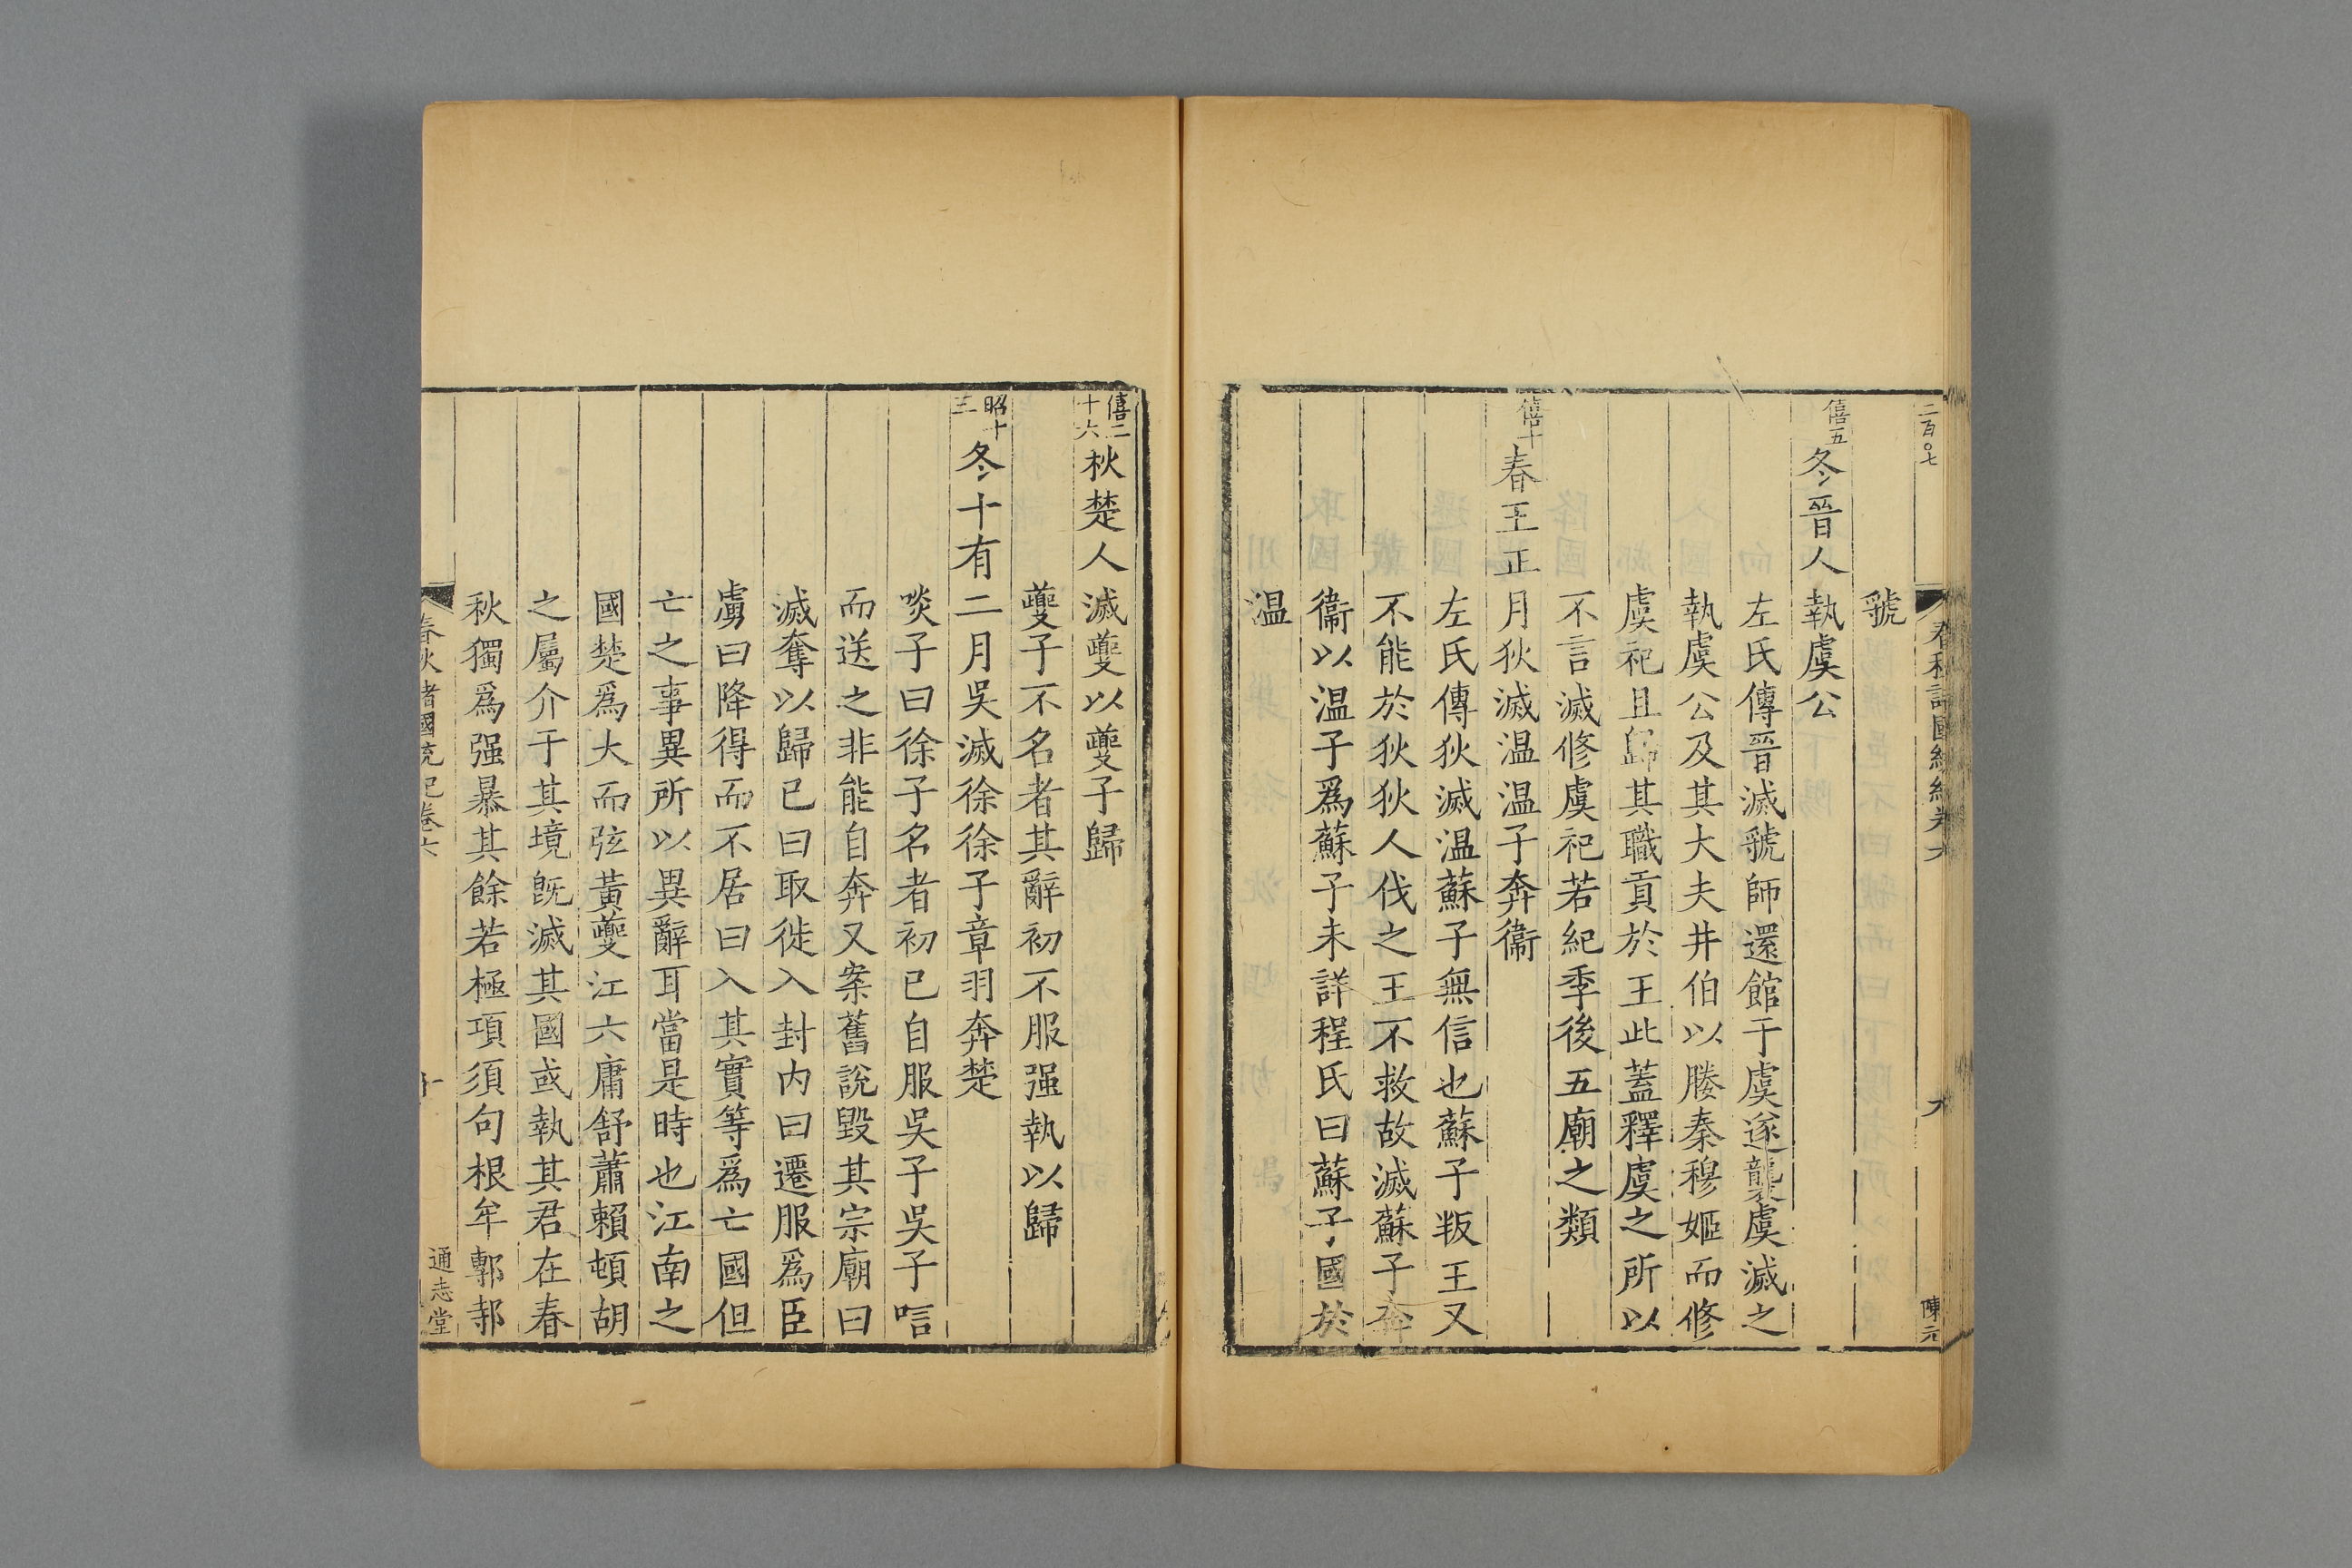 二百〇七
春秋諸國統紀卷六
九
陳元
虢
僖五
冬晉人執虞公
左氏傳晉滅虢師還館于虞遂襲虞滅之
執虞公及其大夫井伯以媵秦穆姬而修
虞祀且歸其職貢於王此蓋釋虞之所以
不言滅修虞祀若紀季後五廟之類
僖十
春王正月狄滅温温子奔衞
左氏傳狄滅温蘇子無信也蘇子叛王又
不能於狄狄人伐之王不救故滅蘇子奔
衞以温子爲蘇子未詳程氏曰蘇子國於
温
僖二
十六
秋楚人滅夔以夔子歸
夔子不名者其辭初不服强執以歸
昭十
三
冬十有二月吳滅徐徐子章羽奔楚
啖子曰徐子名者初已自服吳子吳子唁
而送之非能自奔又案舊說毀其宗廟曰
滅奪以歸已曰取徙入封内曰遷服爲臣
虜曰降得而不居曰入其實等爲亡國但
亡之事異所以異辭耳當是時也江南之
國楚爲大而弦黃夔江六庸舒蕭賴頓胡
之屬介于其境旣滅其國或執其君在春
秋獨爲强暴其餘若極項須句根牟鄟邿
春秋諸國統紀卷六
十
通志堂